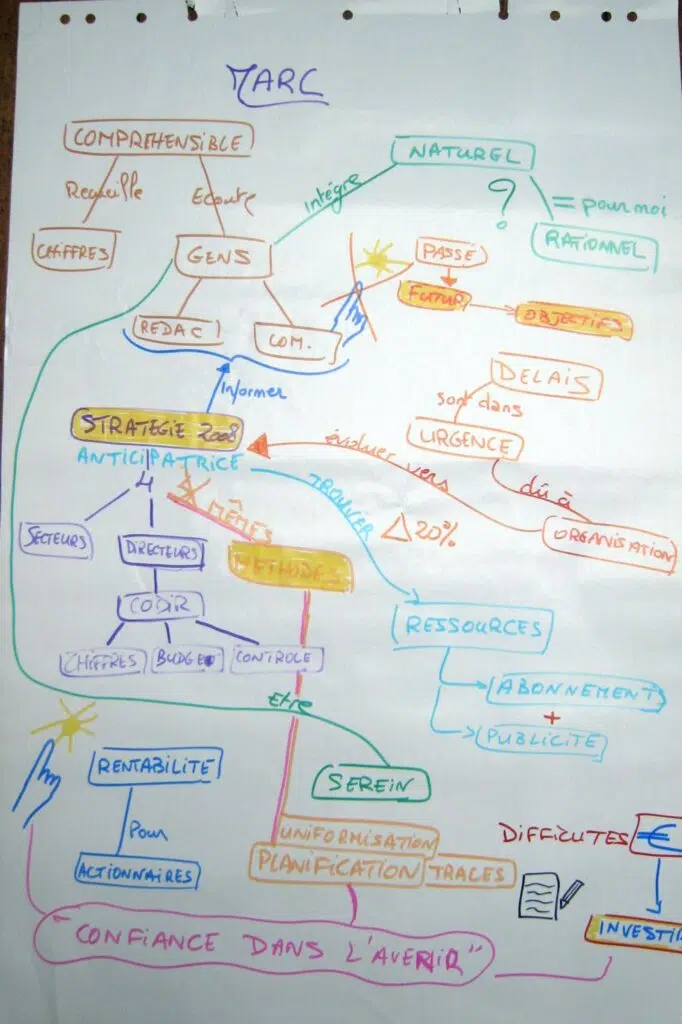 MARC
COMPREHENSIBLE
Recueille
Ecoute
CHIFFRES
GENS
REDAC
COM.
Intégre
NATUREL
?
= pour moi
RATIONNEL
PASSE
FUTUR
OBJECTIFS
Informer
DELAIS
sont dans
URGENCE
dû à
ORGANISATION
évoluer vers
STRATEGIE 2008
ANTICIPATRICE
4
SECTEURS
DIRECTEURS
CODIR
CHIFFRES
BUDGET
CONTROLE
MÊMES
METHODES
TROUVER
20%
RESSOURCES
ABONNEMENT
+
PUBLICITE
Etre
SEREIN
RENTABILITE
Pour
ACTIONNAIRES
UNIFORMISATION
PLANIFICATION
TRACES
DIFFICUTES
€
INVESTI
"CONFIANCE DANS L'AVENIR"